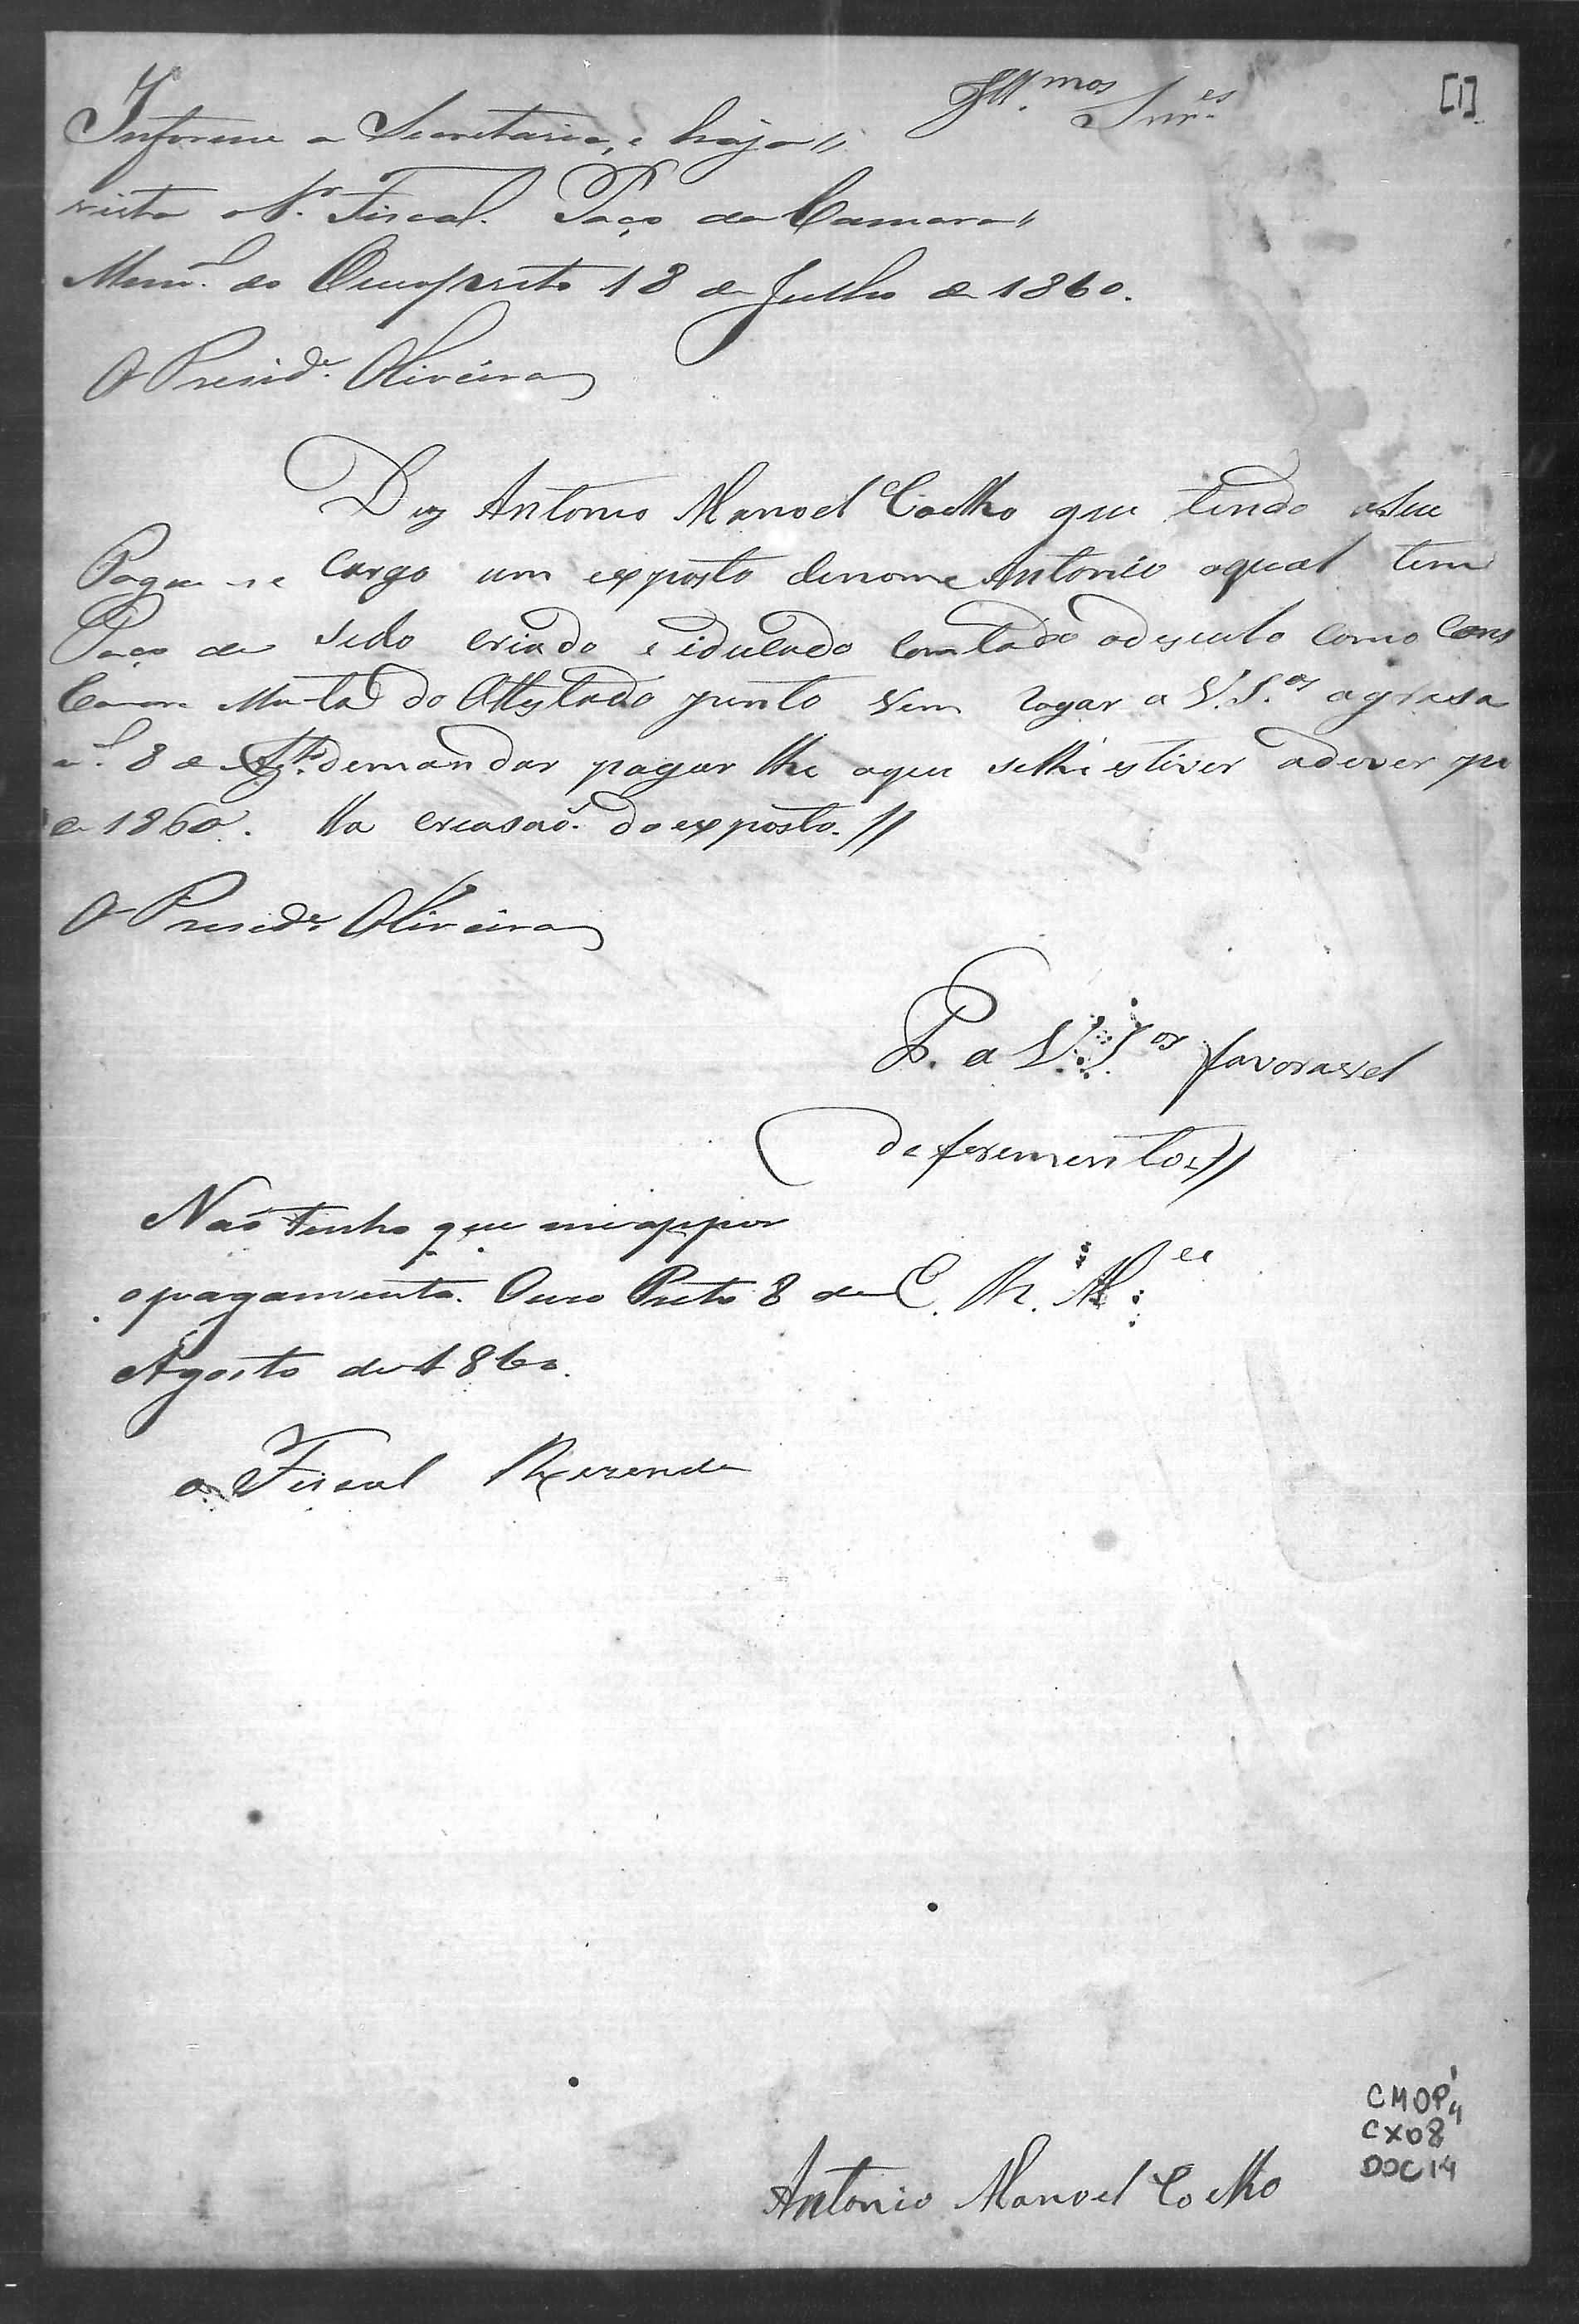 [1]
Ill.mos Snr.es
Informe a Secretaria, e haja
vista o Sr. Fiscal. Paço da Camara
Mun.l do Ouropreto 18 de Julho de 1860.
O Presid.e Oliveira
Diz Antonio Manoel Coelho que tendo aseu
cargo um exposto denome Antonio oqual tem
sido criado e iducado comtodo odesvelo como Cons
ta do Attestado junto vem rogar a V.S.as agrasa
demandar pagar lhe oque selhe estiver adever pe
lla creasaõ do exposto.
Pague-se
Paço da
Camara Mu
al. 8 de Ag.to
de 1860.
O Presid.e Oliveira
P. a V.S.as favoravel
deferemento
E. R. M.ce
Naõ tenho que me oppor
o pagamento. Ouro Preto 8 de
Agosto de 1860.
o Fiscal Rezende
Antonio Manoel Coelho
CMOP
CX08
DOC14